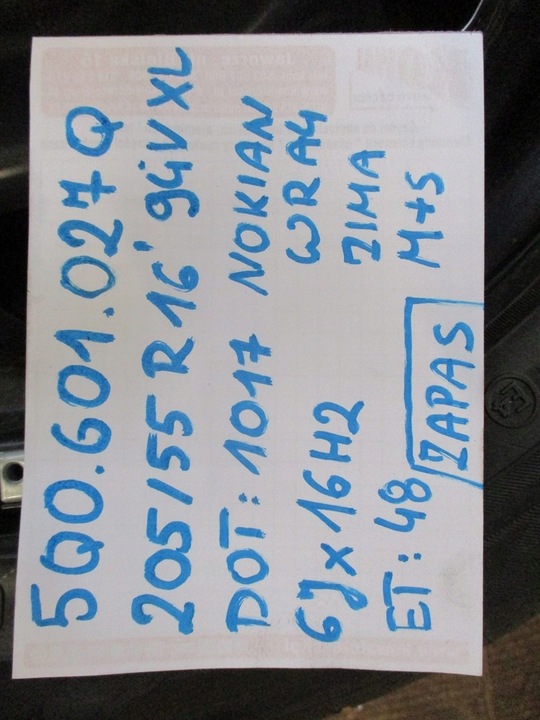 5Q0.601.027Q
205/55 R16' 94V XL
DOT: 1017 NOKIAN
WRA4
6Jx16H2 ZIMA
ET: 48 M+S
ZAPAS